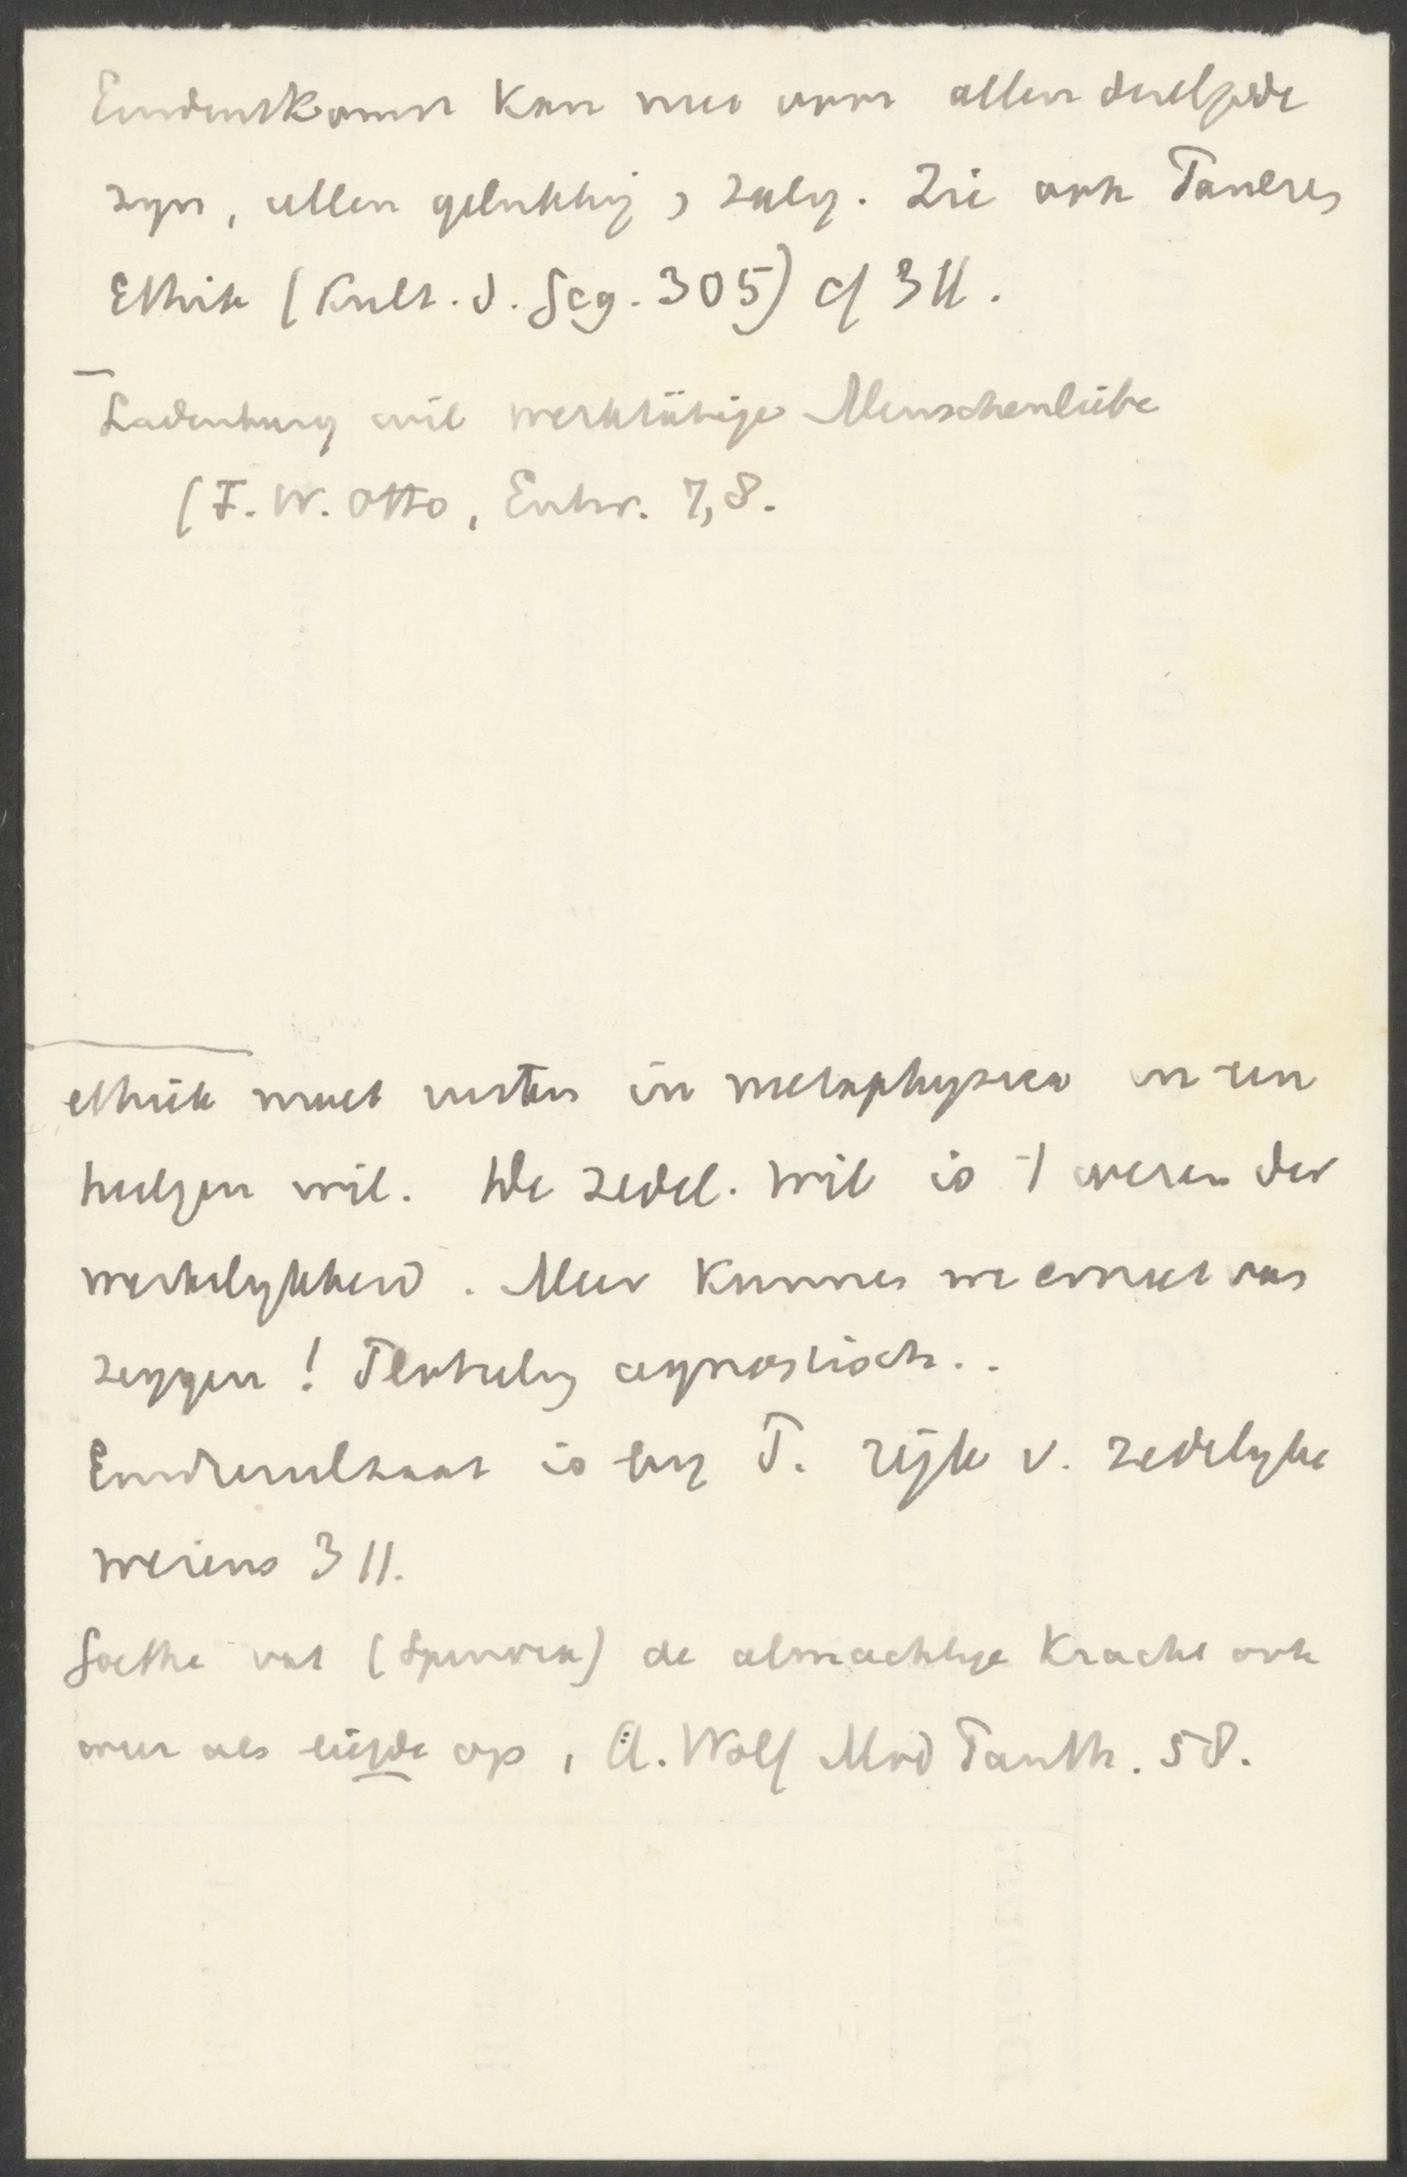 Eindentkomst kan niet voor allen dezelfde
zyn, allen gelukkig, zalig. Zie ook Paulsens
Ethik (Kult. d. Geg. 305) cf 311.
Ladenburg wil werktätige Menschenliebe
(F. W. Otto, Entw. 7,8.
ethiek moet rusten in metaphysica en een
heilgen wil. De zedel. wil is 't wezen der
werkelykheid. Meer kunnen we ervan
zeggen! Plotseling agnostisch..
Eindresultaat is by P. ryk v. zedelyke
wezens 311.
Goethe vat (Spinoza) de almachtige Kracht ook
weer als liefde op, A. Wolf Mod Panth. 58.